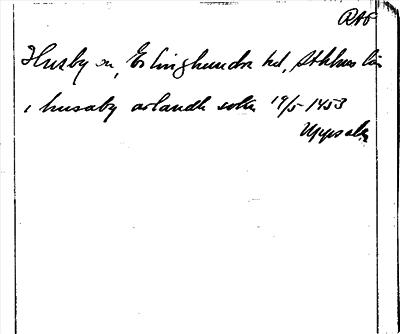 RAP
Husby sn, Erlinghundra hd, Sthlms län
i husaby arlandh sokn 19/5 1453
Uppsala